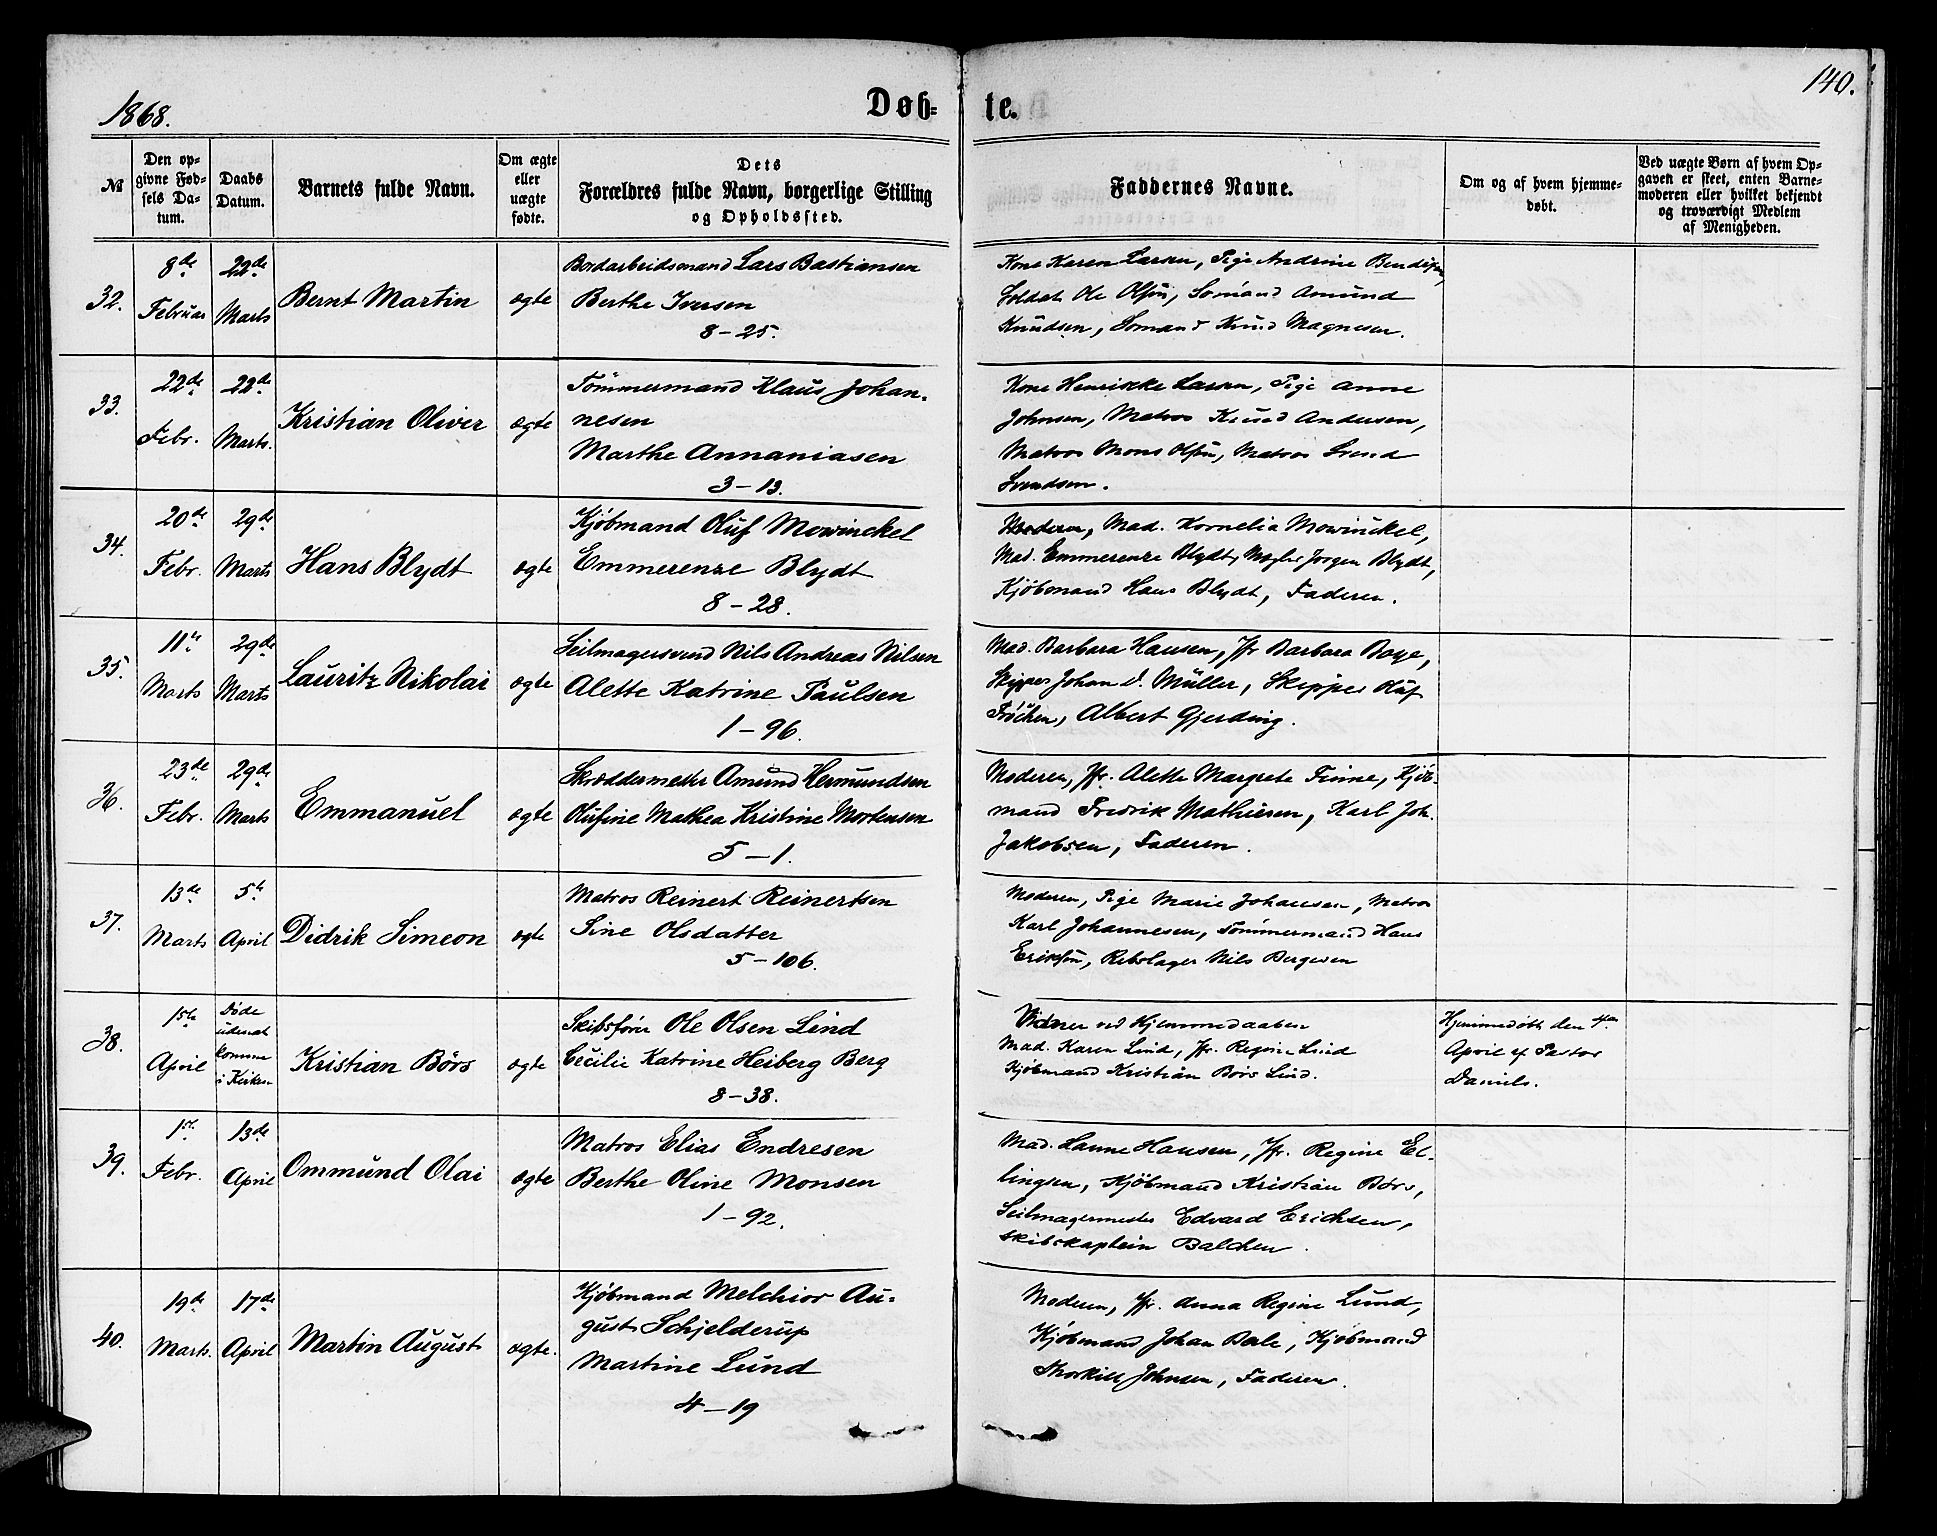 1868.
Døb-
te.
140.
№
Den op-
givne Fød-
sels Da-
tum.
Daabs
Datum.
Barnets fulde Navn.
Om ægte
eller
uægte
fødte.
Dets
Forældres fulde Navn, borgerlige Stilling
og Opholdssted.
Faddernes Navne.
Om og af hvem hjemme-
døbt.
Ved uægte Børn af hvem Op-
gaven er skeet, enten Barne-
moderen eller hvilket bekjendt
og troværdigt Medlem
af Menigheden.
32.
8de
Februar
22de
Marts
Bernt Martin
ægte
Bordarbeidsmand Lars Bastiansen
Berthe Iversen
8-25.
Kone Karen Larsen, Pige Andrine
Soldat Ole Olsen, Sømand Amund
Knudsen, Sømand Knud Magnesen.
33.
22de
Febr.
22de
Marts.
Kristian Oliver
ægte
Tømmermand Klaus Johan-
nesen
Marthe Annaniasen
3-13.
Kone Henrikke Larsen, Pige Anne
Johnsen, Matros Knud Andersen,
Matros Mons Olsen, Matros Svend
Svendsen.
34.
20de
Febr.
29de
Marts
Hans Blydt
ægte
Kjøbmand Oluf Mowinckel
Emmerenze Blydt
8-28.
Moderen, Mad. Kornelia Mowinckel,
Mad. Emmerenze Blydt, Mægler Jørgen Blydt,
Kjøbmand Hans Blydt, Faderen.
35.
11te
Marts
29de
Marts
Lauritz Nikolai
ægte
Seilmagersvend Nils Andreas Nilsen
Alette Katrine Paulsen
1-96.
Mad. Barbara Hansen, Jfr Barbara Boye,
Skipper Johan D. Müller, Skipper Oluf
Frøchen, Albert Gjerding.
36.
23de
Febr.
29de
Marts
Emmanuel
ægte
Skræddermester Amund Hermundsen
Olufine Mathea Kristine Mortensen
5-1.
Moderen, Jfr. Alette Margrete Finne, Kjøb-
mand Fredrik Mathiesen, Karl Joh.
Jakobsen, Faderen.
37.
13de
Marts
5te
April
Didrik Simeon
ægte
Matros Reinert Reinertsen
Sine Olsdatter
5-106.
Moderen, Pige Marie Johansen, Matros
Karl Johannesen, Tømmermand Hans
Eriksen, Rebslager Nils Bergesen
38.
1ste
April
Døde
uden at
komme
i Kirken
Kristian Børs
ægte
Skibsfører Ole Olsen Lind
Cecilie Katrine Heiberg Berg
8-38.
Vidner ved Hjemmedaaben
Mad. Karen Lind, Jfr. Regine Lind
Kjøbmand Kristian Børs Lind.
Hjemmedøbt den 4de
April af Pastor
Daniels.
39.
1ste
Febr.
13de
April
Ommund Olai
ægte
Matros Elias Endresen
Berthe Oline Monsen
1-92.
Mad. Hanne Hansen, Jfr. Regine El-
lingsen, Kjøbmand Kristian Børs,
Seilmagermester Edvard Erichsen,
Skibskaptein Balchen.
40.
19de
Marts.
17de
April
Martin August
ægte.
Kjøbmand Melchior Au-
gust Schjelderup
Martine Lund
4-19
Moderen, Jfr. Anna Regine Lund,
Kjøbmand Johan Dale, Kjøbmand
Thorkild Johnsen, Faderen.